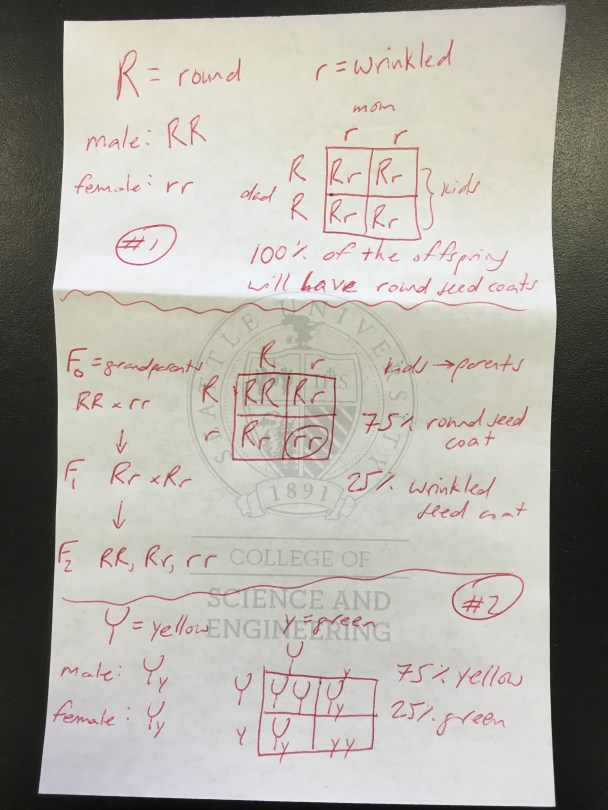 R = round r = wrinkled
male: RR
female: rr
mom
r r
dad R Rr Rr kids
R Rr Rr
#1
100% of the offspring
will have round seed coats
SEATTLE UNIVERSITY
1891
F0 = grandparents
RR x rr
↓
F1 Rr x Rr
↓
F2 RR, Rr, rr
R r
R RR Rr
r Rr rr
kids → parents
75% round seed
coat
25% wrinkled
seed coat
COLLEGE OF
SCIENCE AND
ENGINEERING
#2
Y = yellow y = green
male: Yy
female: Yy
Y y
Y YY Yy
y Yy yy
75% yellow
25% green